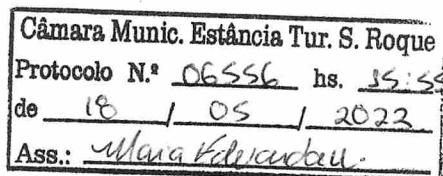 Câmara Munic. Estância Tur. S. Roque
Protocolo N.º 06556 hs. 15:55
de 18 / 05 / 2022
Ass.: Maria